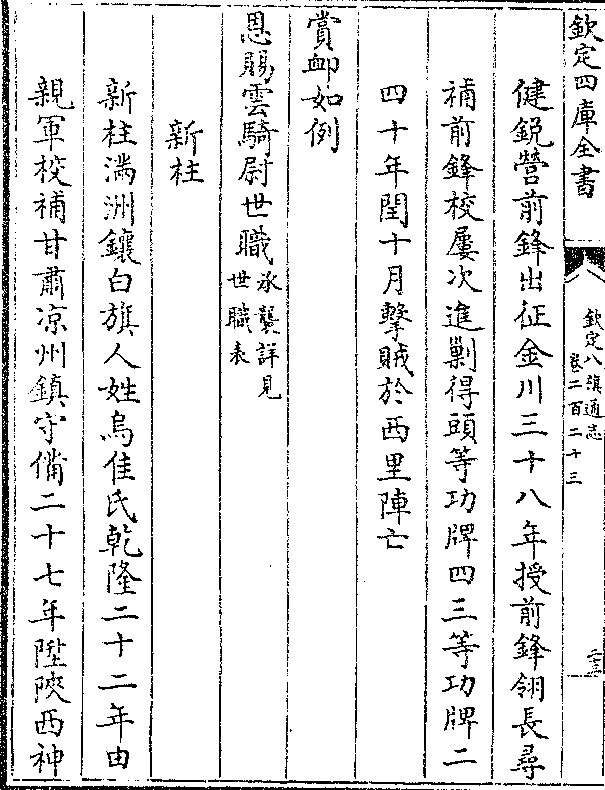 欽定四庫全書
欽定八旗通志
卷二百二十三
健銳營前鋒出征金川三十八年授前鋒翎長尋
補前鋒校屢次進剿得頭等功牌四三等功牌二
四十年閏十月擊賊於西里陣亡
賞卹如例
恩賜雲騎尉世職承襲詳見
世職表
新柱
新柱滿洲鑲白旗人姓烏佳氏乾隆二十二年由
親軍校補甘肅凉州鎮守備二十七年陞陝西神